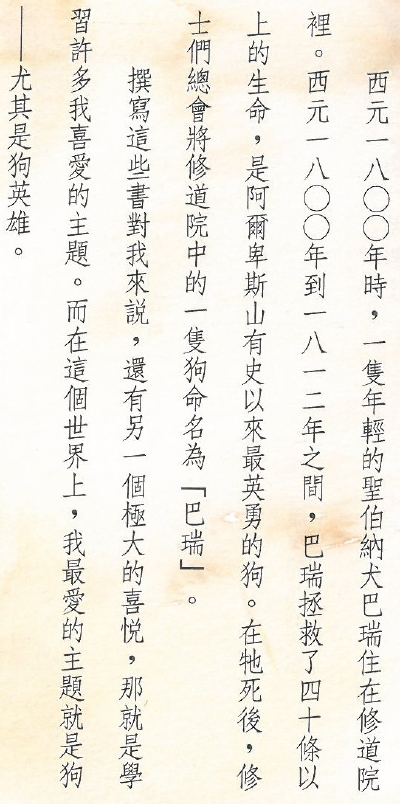 西元一八〇〇年時，一隻年輕的聖伯納犬巴瑞住在修道院
裡。西元一八〇〇年到一八一二年之間，巴瑞拯救了四十條以
上的生命，是阿爾卑斯山有史以來最英勇的狗。在牠死後，修
士們總會將修道院中的一隻狗命名為「巴瑞」。
撰寫這些書對我來說，還有另一個極大的喜悅，那就是學
習許多我喜愛的主題。而在這個世界上，我最愛的主題就是狗
——尤其是狗英雄。